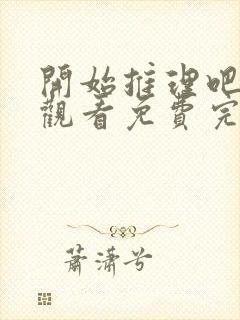 開始推理吧
觀看免費完
蕭瀟兮